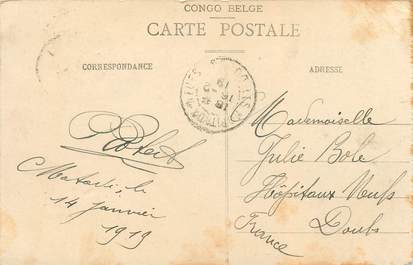 CONGO BELGE
CARTE POSTALE
CORRESPONDANCE
ADRESSE
Matadi, le
14 Janvier
1919
Mademoiselle
Julie Bole
Hôpitaux Neufs
Doubs
France